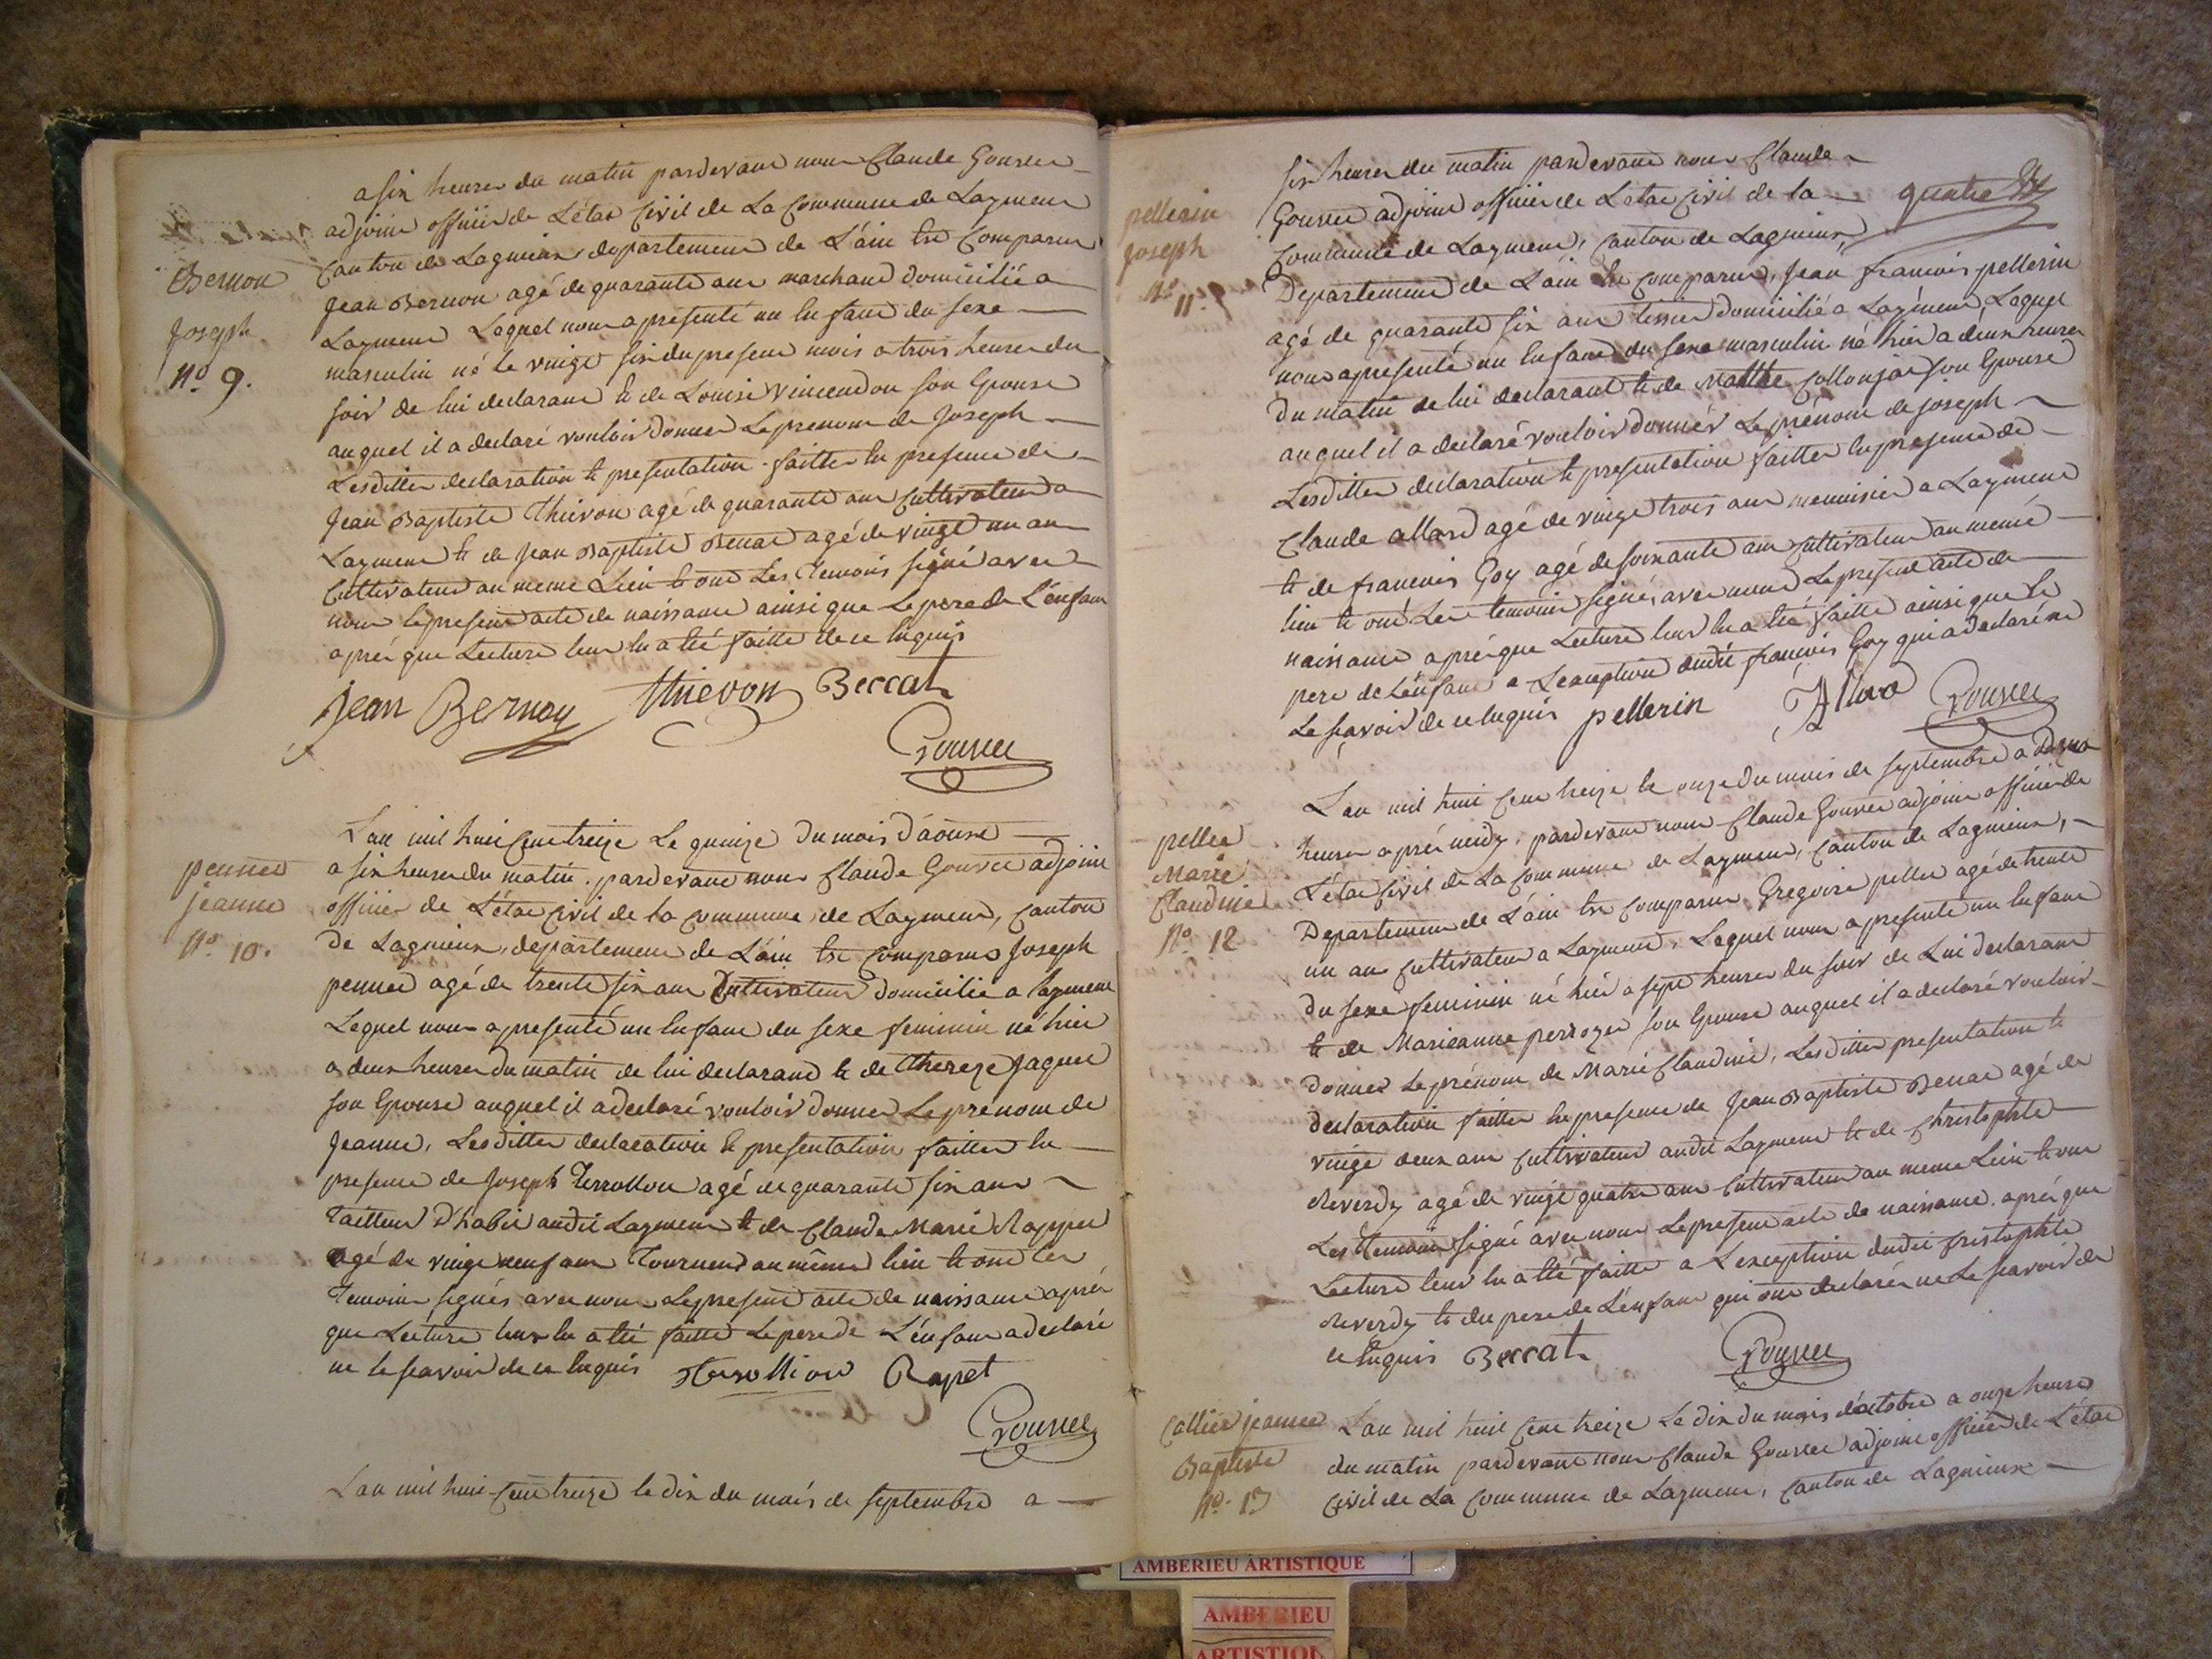 a six heures du matin pardevant nous Claude Gourree
adjoint officier de L'état Civil de La Commune de Lagmeux
Canton de Lagnieux departement de L'ain est Comparu
Jean Bernon agé de quarante ans marchand domicilié a
Laymeux Lequel nous a presenté un Enfant du sexe
masculin né le vingt six du present mois a trois heures du
soir de lui declarant et de Louise Vincendon son Epouse
auquel il a declaré vouloir donner Le prenom de Joseph
Lesdittes declaration et presentation faittes En presence de
Jean Baptiste thievon agé de quarante ans Cultivateur a
Laymeux et de Jean Baptiste Beccat agé de vingt un an
Cultivateur au meme Lieu et ont Les temoins signé avec
nous le present acte de naissance ainsi que Le pere de L'enfant
aprés que Lecture leur En a été faitte de ce Enquis
Jean Bernon thievon Beccat
Bernon
Joseph
N° 9.
L'an mil huit Cent treize Le quinze du mois d'aoust
a six heures du matin. pardevant nous Claude Gourree adjoint
officier de L'état Civil de la Commune de Laymeux, Canton
de Lagnieux, departement de L'ain est Comparu Joseph
pennet agé de trente six ans Cultivateur domicilié a laymeux
Lequel nous a presenté un Enfant du sexe feminin né hier
a deux heures du matin de lui declarant et de thereze Jaquet
son Epouse auquel il a declaré vouloir donner Le prenom de
Jeanne, Lesdittes declaration et presentation faittes En
presence de Joseph Terrollion agé de quarante six ans
tailleur d'habit audit Laymeux et de Claude Marie Rappet
agé de vingt neuf ans Tourneur au même lieu et ont Les
Temoins signés avec nous Le present acte de naissance aprés
que Lecture leur En a été faitte Le pere de L'enfant a declaré
ne le scavoir de ce Enquis Terollion Rapet
pennet
jeanne
N° 10.
L'an mil huit Cent treize le dix du mois de septembre a
quatre
six heures du matin pardevant nous Claude
Gourree adjoint officier de L'etat Civil de la
Commune de Laymeux, Canton de Lagnieux,
Departement de L'ain est Comparu, Jean francois pellerin
agé de quarante six ans tissier domicilié a Laymeux, Lequel
nous a presenté un Enfant du sexe masculin né hier a deux heures
du matin de lui declarant et de Marthe Collonjat son Epouse
auquel il a declaré vouloir donner Le prénom de joseph
Lesdittes declaration et presentation faittes En presence de
Claude allard agé de vingt trois ans menuisier a Laymeux
et de francois Goy agé de soixante ans Cultivateur au meme
lieu et ont Les temoins signés, avec nous Le present acte de
naissance aprés que Lecture leur En a été faitte ainsi que Le
pere de L'enfant a L'exception dudit francois Goy qui a declaré ne
Le scavoir de ce Enquis pellerin Allard
pellerin
joseph
N° 11
L'an mil huit Cent treize le onze du mois de septembre a deux
heures aprés midy, pardevant nous Claude Gourree adjoint officier de
L'état Civil de La Commune de Laymeux, Canton de Lagnieux,
Departement de L'ain est Comparu Gregoire pellet agé de trente
un ans Cultivateur a Laymeux, Lequel nous a presenté un Enfant
du sexe feminin né hier a sept heures du soir de Lui declarant
et de Marieanne perrozet son Epouse auquel il a declaré vouloir
donner Le prénom de Marie Claudine, Lesdittes presentation et
declaration faittes En presence de Jean Baptiste Beccat agé de
vingt deux ans Cultivateur audit Laymeux et de Christophle
Reverdy agé de vingt quatre ans Cultivateur au meme Lieu et ont
Les temoins signé avec nous Le present acte de naissance, aprés que
Lecture leur En a été faitte a L'exception dudit Cristophle
Reverdy et du pere de L'enfant qui ont declarés ne Le scavoir de
ce Enquis Beccat
pellet
Marie
Claudine
N° 12
L'an mil huit Cent treize Le dix du mois d'octobre a onze heures
du matin pardevant nous Claude Gourree adjoint officier de L'état
Civil de La Commune de Laymeux, Canton de Lagnieux
jeanne
Baptiste
N° 13
AMBERIEU ARTISTIQUE
AMBERIEU